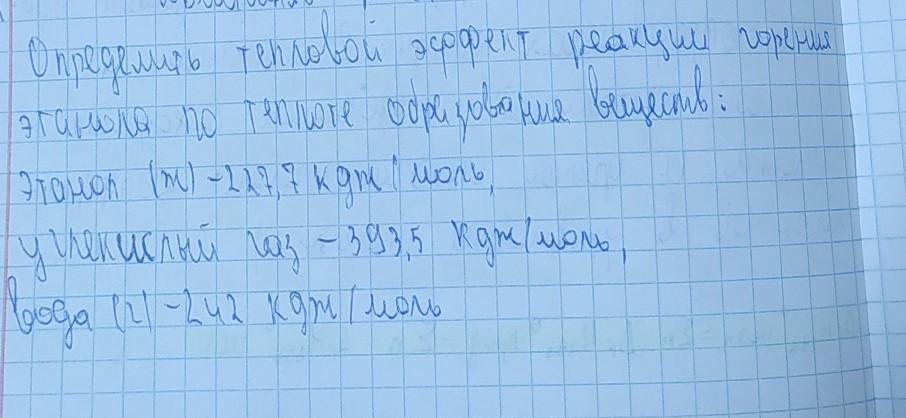 Определить тепловой эффект реакции горения
этанола по теплоте образования веществ:
этанол (ж) -227,7 кдж/моль,
углекислый газ -393,5 кдж/моль,
вода (г) -242 кдж/моль